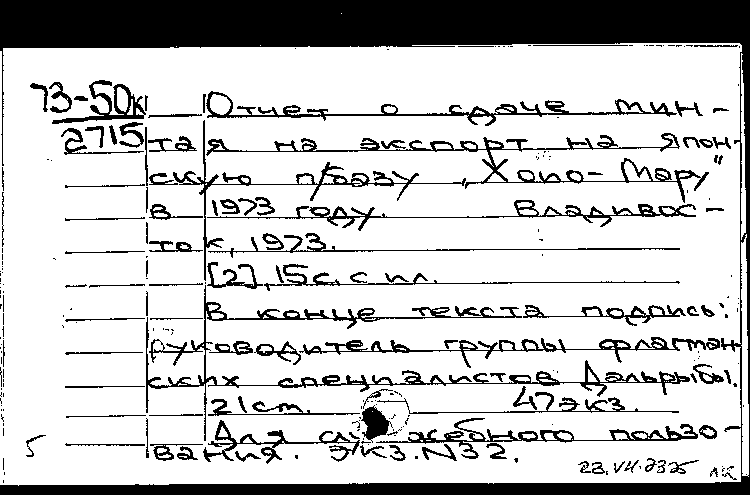 73-50к
2715
Отчет о сдаче мин-
тая на экспорт на Япон-
скую п/базу „Хоио-Мару"
в 1973 году. Владивос-
ток, 1973.
[2], 15 с. с ил.
В конце текста подпись:
руководитель группы флагман-
ских специалистов Дальрыбы.
21 ст. 47 экз.
Для служебного пользо-
вания. Экз. N32.
5